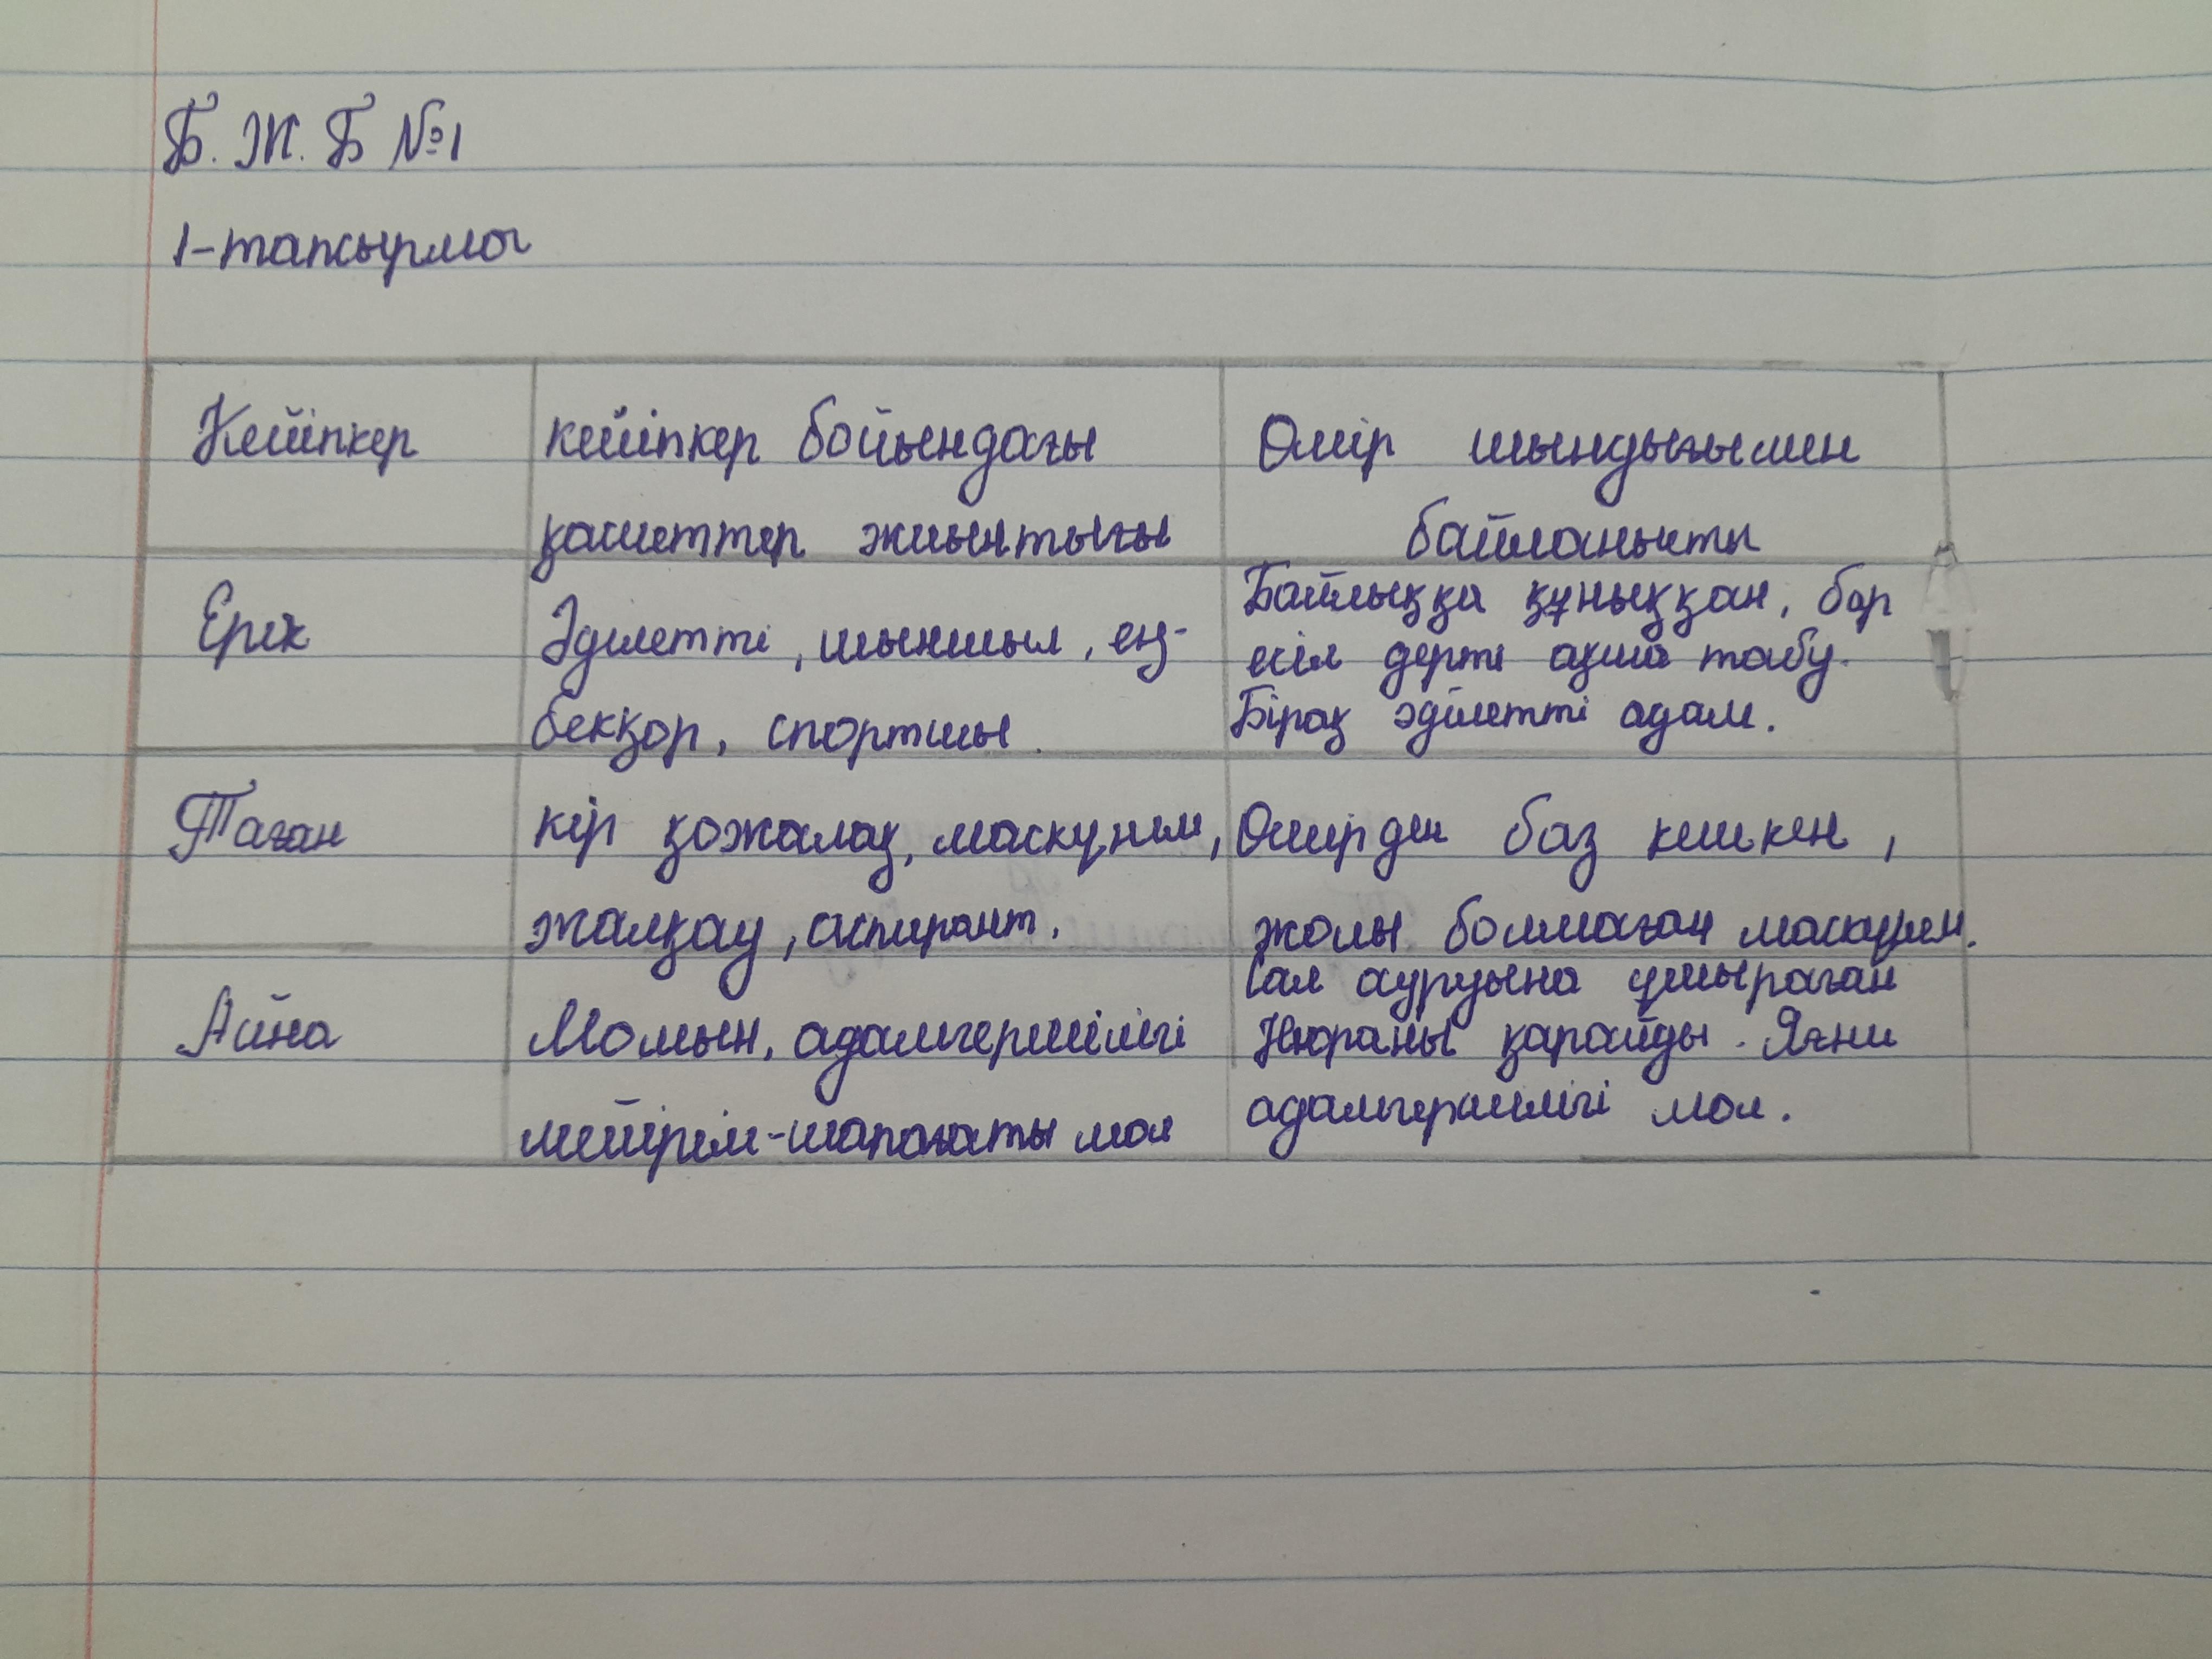 Б.Ж.Б №1
1-тапсырма
Кейіпкер
кейіпкер бойындағы
қасиеттер жиынтығы
Өмір шындығымен
байланысты
Ерік
Әділетті, шыншыл, ең-
бекқор, спортшы.
Байлыққа құныққан, бар
есіл дерті ақша табу.
Бірақ әділетті адам.
Таған
кір қожалақ, маскүнем,
жалқау, аспирант.
Өмірден баз кешкен,
жолы болмаған маскүнем.
Айна
Момын, адамгершілігі
мейірім-шапағаты мол
Сал ауруына ұшыраған
Нюраны қарайды. Яғни
адамгершілігі мол.